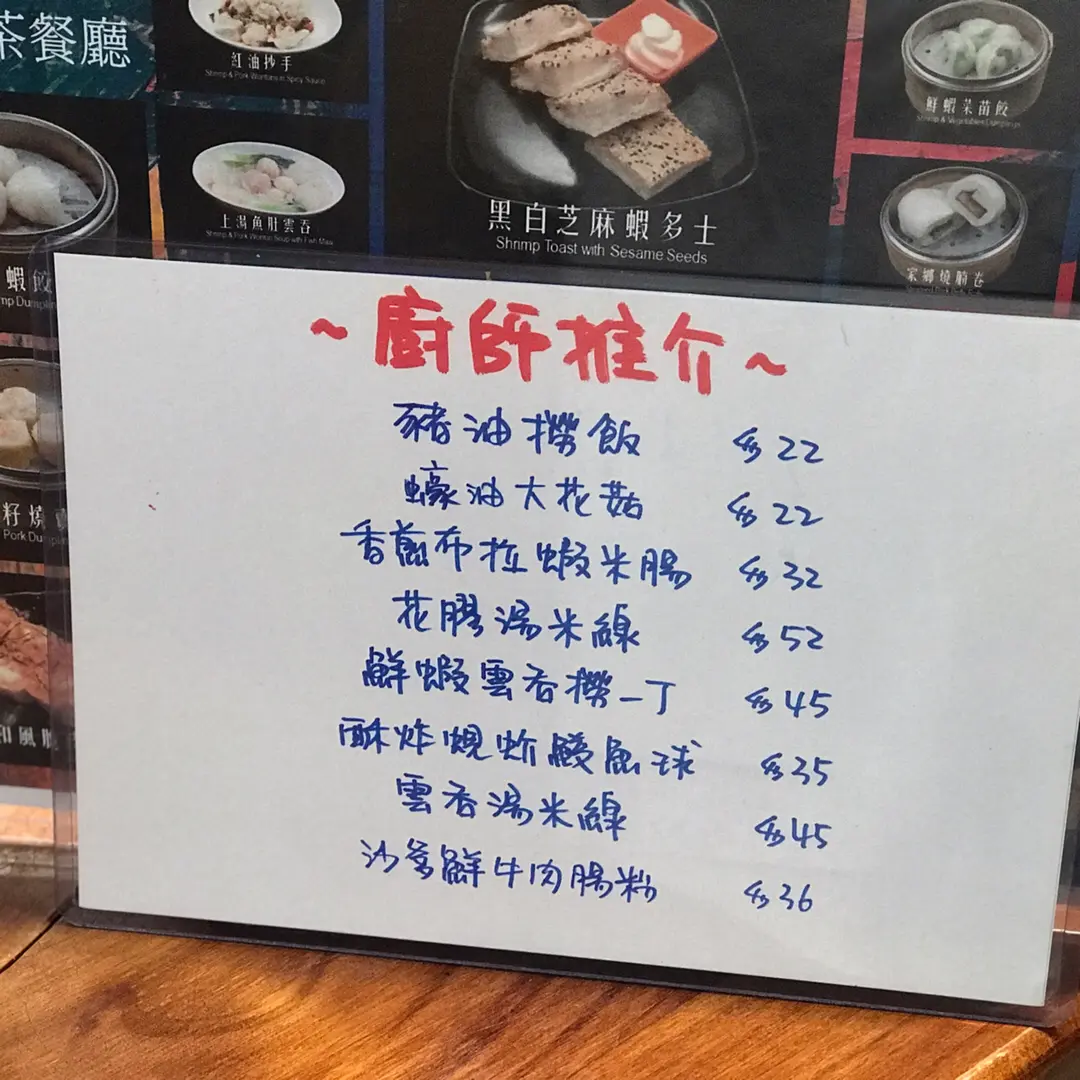 茶餐廳
紅油抄手
Shrimp & Pork Wontons in Spicy Sauce
上湯魚肚雲吞
Shrimp & Pork Wonton Soup with Fish Maw
黑白芝麻蝦多士
Shrimp Toast with Sesame Seeds
鮮蝦菜苗餃
Shrimp & Vegetables Dumplings
家鄉燒腩卷
蝦餃
mp Dumplin
籽燒賣
Pork Dump
和風
~廚師推介~
豬油撈飯 $22
蠔油大花菇 $22
香煎布拉蝦米腸 $32
花膠湯米線 $52
鮮蝦雲吞撈一丁 $45
酥炸蜆蚧鯪魚球 $35
雲吞湯米線 $45
沙爹鮮牛肉腸粉 $36